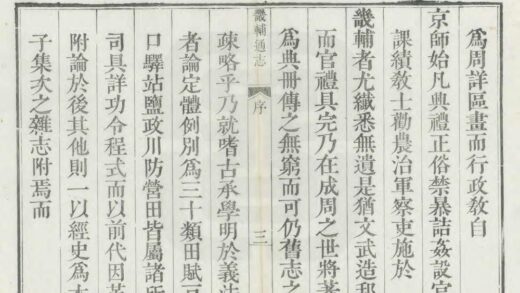 為周詳區畫而行政教自
京師始凡典禮正俗禁暴詰姦設官
課績教士勸農治軍察吏施於
畿輔者尤纖悉無遺是猶文武造邦
而官禮具完乃在成周之世將著
為典冊傳之無窮而可仍舊志之
畿輔通志 序 三
疎略乎乃就嗜古承學明於義法
者論定體例別為三十類田賦
口驛站鹽政川防營田皆屬諸所
司具詳功令程式而以前代因革
附論於後其他則一以經史為
子集次之雜志附焉而